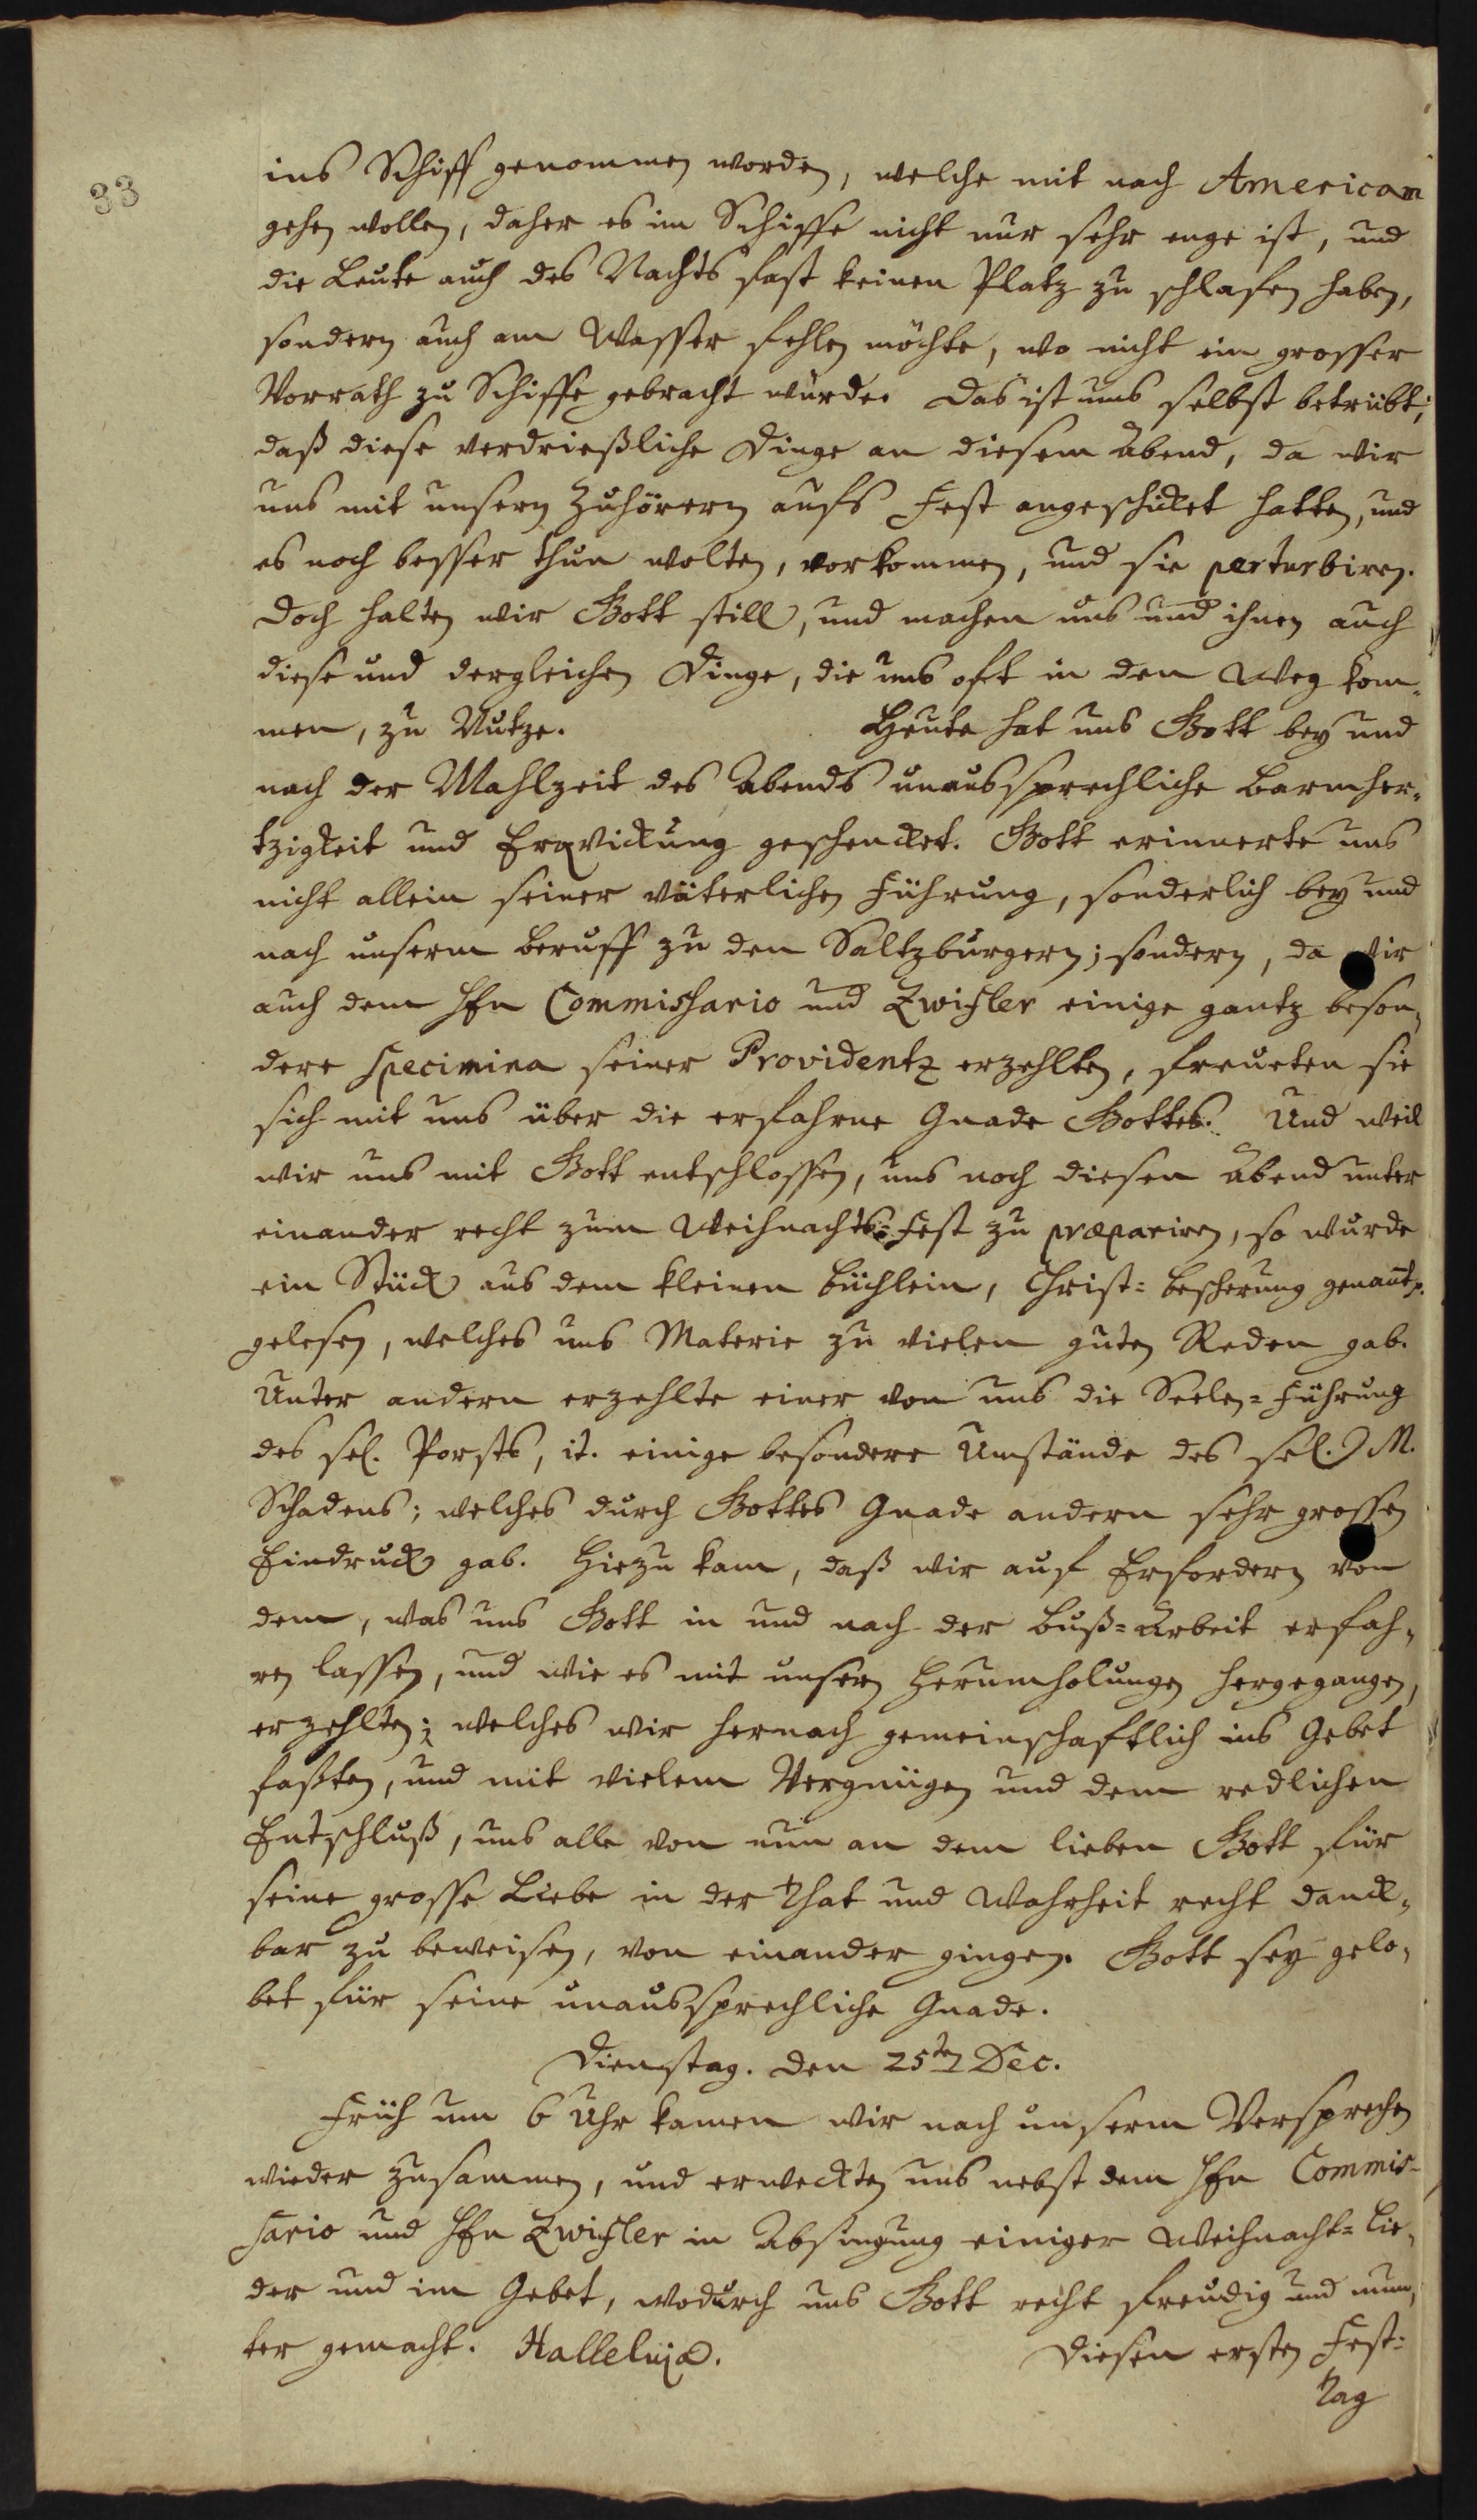 33
ins Schiff genommen worden, welche mit nach American
gehen wollen, daher es im Schiffe nicht nur sehr enge ist, und
die Leute auch des Nachts fast keinen Platz zu schlafen haben,
sondern auch am Wasser fehlen möchte, wo nicht ein grosser
Vorrath zu Schiffe gebracht würde. Das ist uns selbst betrübt,
daß diese verdrießliche Dinge an diesem Abend, da wir
uns mit unsern Zuhörern aufs Fest angeschickt hatten, und
es noch besser thun wolten, vorkommen, und sie perturbiren.
Doch halten wir Gott still, und machen uns und ihnen auch
diese und dergleichen Dinge, die uns oft in den Weg kom-
men, zu Nutze. Heute hat uns Gott bey und
nach der Mahlzeit des Abends unaussprechliche Barmher-
tzigkeit und Erqvickung geschencket. Gott erinnerte uns
nicht allein seiner väterlichen Führung, sonderlich bey und
nach unserm Beruff zu den Saltzburgern; sondern, da wir
auch dem Hln Commissario und Zwifler einige gantz beson-
dere specimina seiner Providentz erzehlten, freueten sie
sich mit uns über die erfahrne Gnade Gottes. Und weil
wir uns mit Gott entschlossen, uns noch diesen Abend unter
einander recht zum Weihnachts-Fest zu præpariren, so wurde
ein Stück aus dem kleinen Büchlein, Christ-Bescherung genannt,
gelesen, welches uns Materie zu vielen guten Reden gab.
Unter andern erzehlte einer von uns die Seelen-Führung
des sel. Porsts, it. einige besondere Umstände des sel. M.
Schadens; welches durch Gottes Gnade andern sehr grossen
Eindruck gab. Hiezu kam, daß wir auf Erfordern von
dem, was uns Gott in und nach der Buß-Arbeit erfah-
ren lassen, und wie es mit unsern Herumholungen hergegangen,
erzehlten; welches wir hernach gemeinschaftlich ins Gebet
faßten, und mit vielem Vergnügen und dem redlichen
Entschluß, uns alle von nun an dem lieben Gott für
seine grosse Liebe in der That und Wahrheit recht danck-
bar zu beweisen, von einander gingen. Gott sey gelo-
bet für seine unaussprechliche Gnade.
Dienstag. den 25ten Dec.
Früh um 6 Uhr kamen wir nach unserm Versprechen
wieder zusammen, und erweckten uns nebst dem Hln Commis-
sario und Hln Zwifler in Absingung einiger Weihnacht-Lie-
der und im Gebet, wodurch uns Gott recht freudig und mun-
ter gemacht. Halleluja. Diesen ersten Fest-
Tag